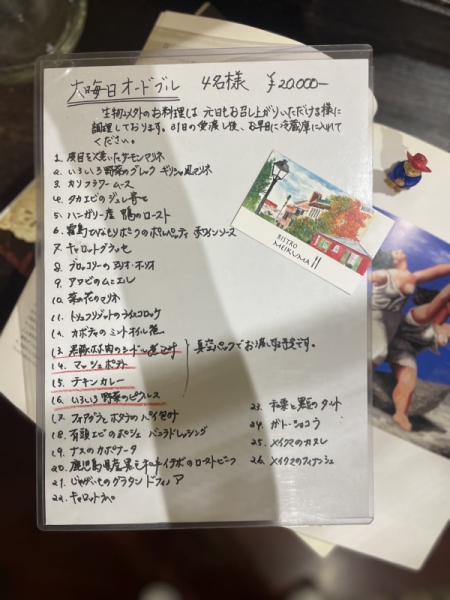 大晦日オードブル 4名様 ¥20,000-
生物メインのお料理は元日もお召し上がりいただける様に
調理しております。31日の受渡し後、お早目に冷蔵庫に入れて
ください。
1. 皮目を火焼いたサーモンマリネ
2. いろいろ野菜のグレック ギリシャ風マリネ
3. カリフラワームース
4. タカエビのジュレ寄せ
5. ハンガリー産 鴨のロースト
6. 霧島ひなもりポークのポルペッティ 赤ワインソース
7. キャロットグラッセ
8. ブロッコリーのアリオ・オーリオ
9. アワビのムニエル
10. 菜の花のマリネ
11. トリュフリゾットのライスコロッケ
12. カボチャのミントオイル
13. 黒豚ホホ肉のシードル煮込み
14. マッシュポテト
15. チキンカレー
16. いろいろ野菜のピクルス
真空パックでお渡し予定です。
17. フォアグラとホタテのパイ包み
18. 有頭エビのポシェ バニラドレッシング
19. ナスのカポナータ
20. 鹿児島県産黒毛和牛イチボのローストビーフ
21. じゃがいものグラタン ドフィノア
22. キャロットラペ
23. 和栗と黒豆のタルト
24. ガトーショコラ
25. メイクマのカヌレ
26. メイクマのフィナンシェ
BISTRO
MEIKUMA